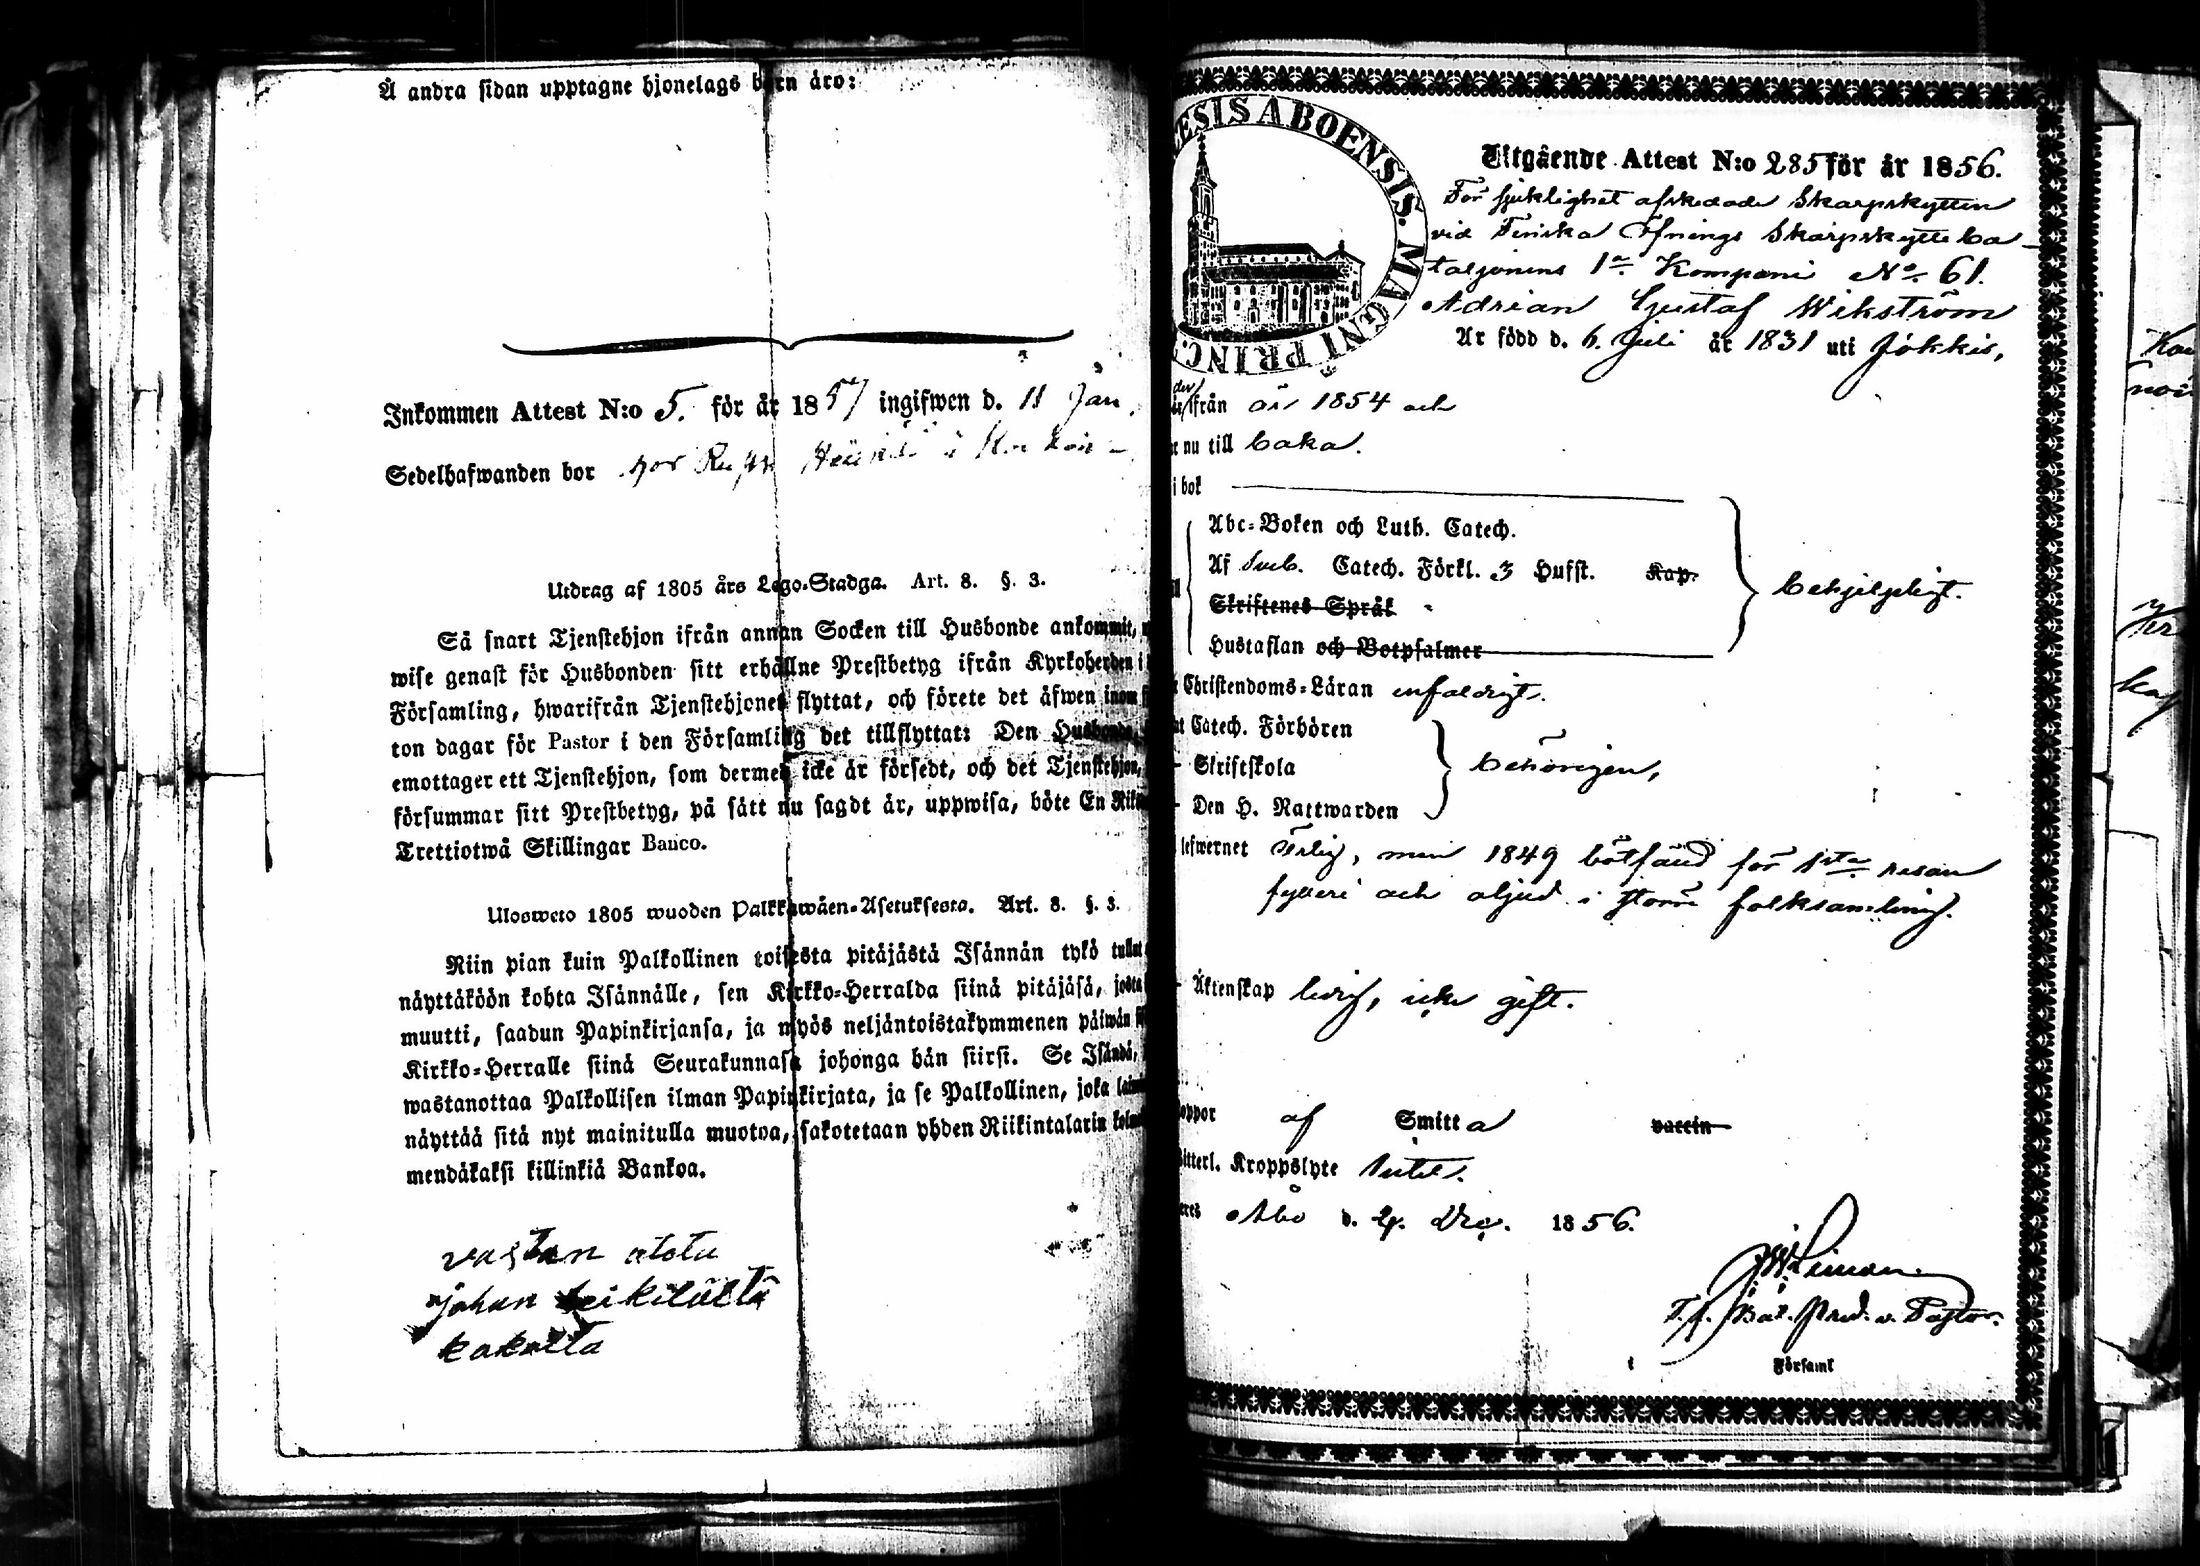 Å andra sidan upptagne hjonelags barn äro:
Inkommen Attest N:o 5. för år 1857 ingifwen d. 11 Jan.
Sedelhafwanden bor hos
Utdrag af 1805 års Lego-Stadga. Art. 8. §. 3.
Så snart Tjenstehjon ifrån annan Socken till Husbonde ankommit,
wise genast för Husbonden sitt erhållne Prestbetyg ifrån Kyrkoherden i
Församling, hwarifrån Tjenstehjonet flyttat, och förete det äfwen inom
ton dagar för Pastor i den Församling det tillflyttat: Den Husbonde,
emottager ett Tjenstehjon, som dermed icke är försedt, och det Tjenstehjon,
försummar sitt Prestbetyg, på sätt nu sagdt är, uppwisa, böte En
Trettiotwå Skillingar Banco.
Ulosweto 1805 wuoden Palkkawäen-Asetuksesta. Art. 8. §. 3.
Niin pian kuin Palkollinen toisesta pitäjästä Isännän tykö tullut
näyttäköön kohta Isännälle, sen Kirkko-Herralda siinä pitäjäsä, josta
muutti, saadun Papinkirjansa, ja myös neljäntoistakymmenen päiwän
Kirkko-Herralle siinä Seurakunnasa johonga hän siirsi. Se Isändä,
wastanottaa Palkollisen ilman Papinkirjata, ja se Palkollinen, joka
näyttää sitä nyt mainitulla muotoa, sakotetaan yhden Riikintalarin
mendäkaksi killinkiä Bankoa.
vastan otetu
johan
ESIS ABOENSIS. MAGNI PRINC.
Utgående Attest N:o 285 för år 1856.
För sjuklighet afskedade Skarpskytten
vid Finska Öfnings Skarpskytte ba-
taljonens 1a Kompani No 61.
Adrian Gustaf Wikström
Är född d. 6. Juli år 1831 uti Jokkis,
ifrån år 1854 och
nu till baka.
i bok
Abc-Boken och Luth. Catech.
Af Sveb. Catech. Förkl. 3 Hufst. Kap.
Skriftenes Språk
Hustaflan och Botpsalmer
behjelpligt.
Christendoms-Läran enfaldigt.
Catech. Förhören
Skriftskola
Den H. Nattwarden
behörigen,
lefwernet Ärlig, men 1849 bötfäld för 1sta resan
fylleri och oljud i större folksamling.
Äktenskap ledig, icke gift.
koppor af Smitta vaccin
Kroppslyte
Åbo d. 4. Dec. 1856.
T. f. Bat. Pred. v. Pastor.
Församl